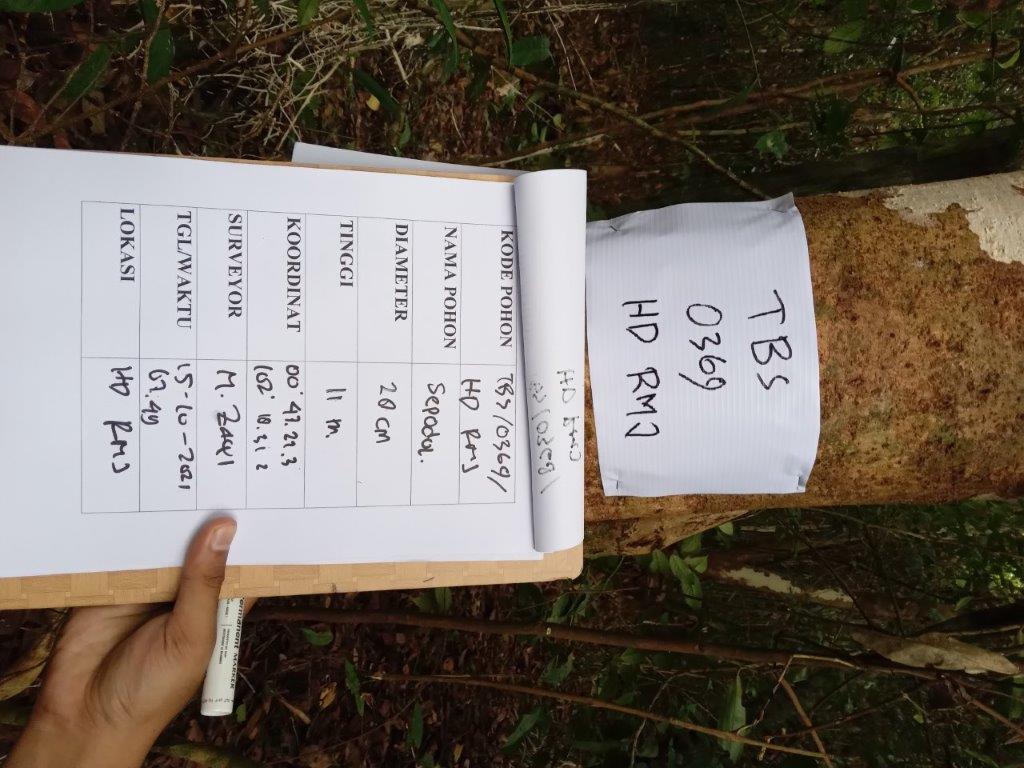 TBS
0369
HD RMJ
KODE POHON TBS/0369/
HD RMJ
NAMA POHON Sepodol.
DIAMETER 20 cm
TINGGI 11 m.
KOORDINAT 00° 47. 27. 3
102° 18. 31 2
SURVEYOR M. ZAQI
TGL/WAKTU 15-10-2021
07.49
LOKASI HD RMJ
PERMANENT MARKER